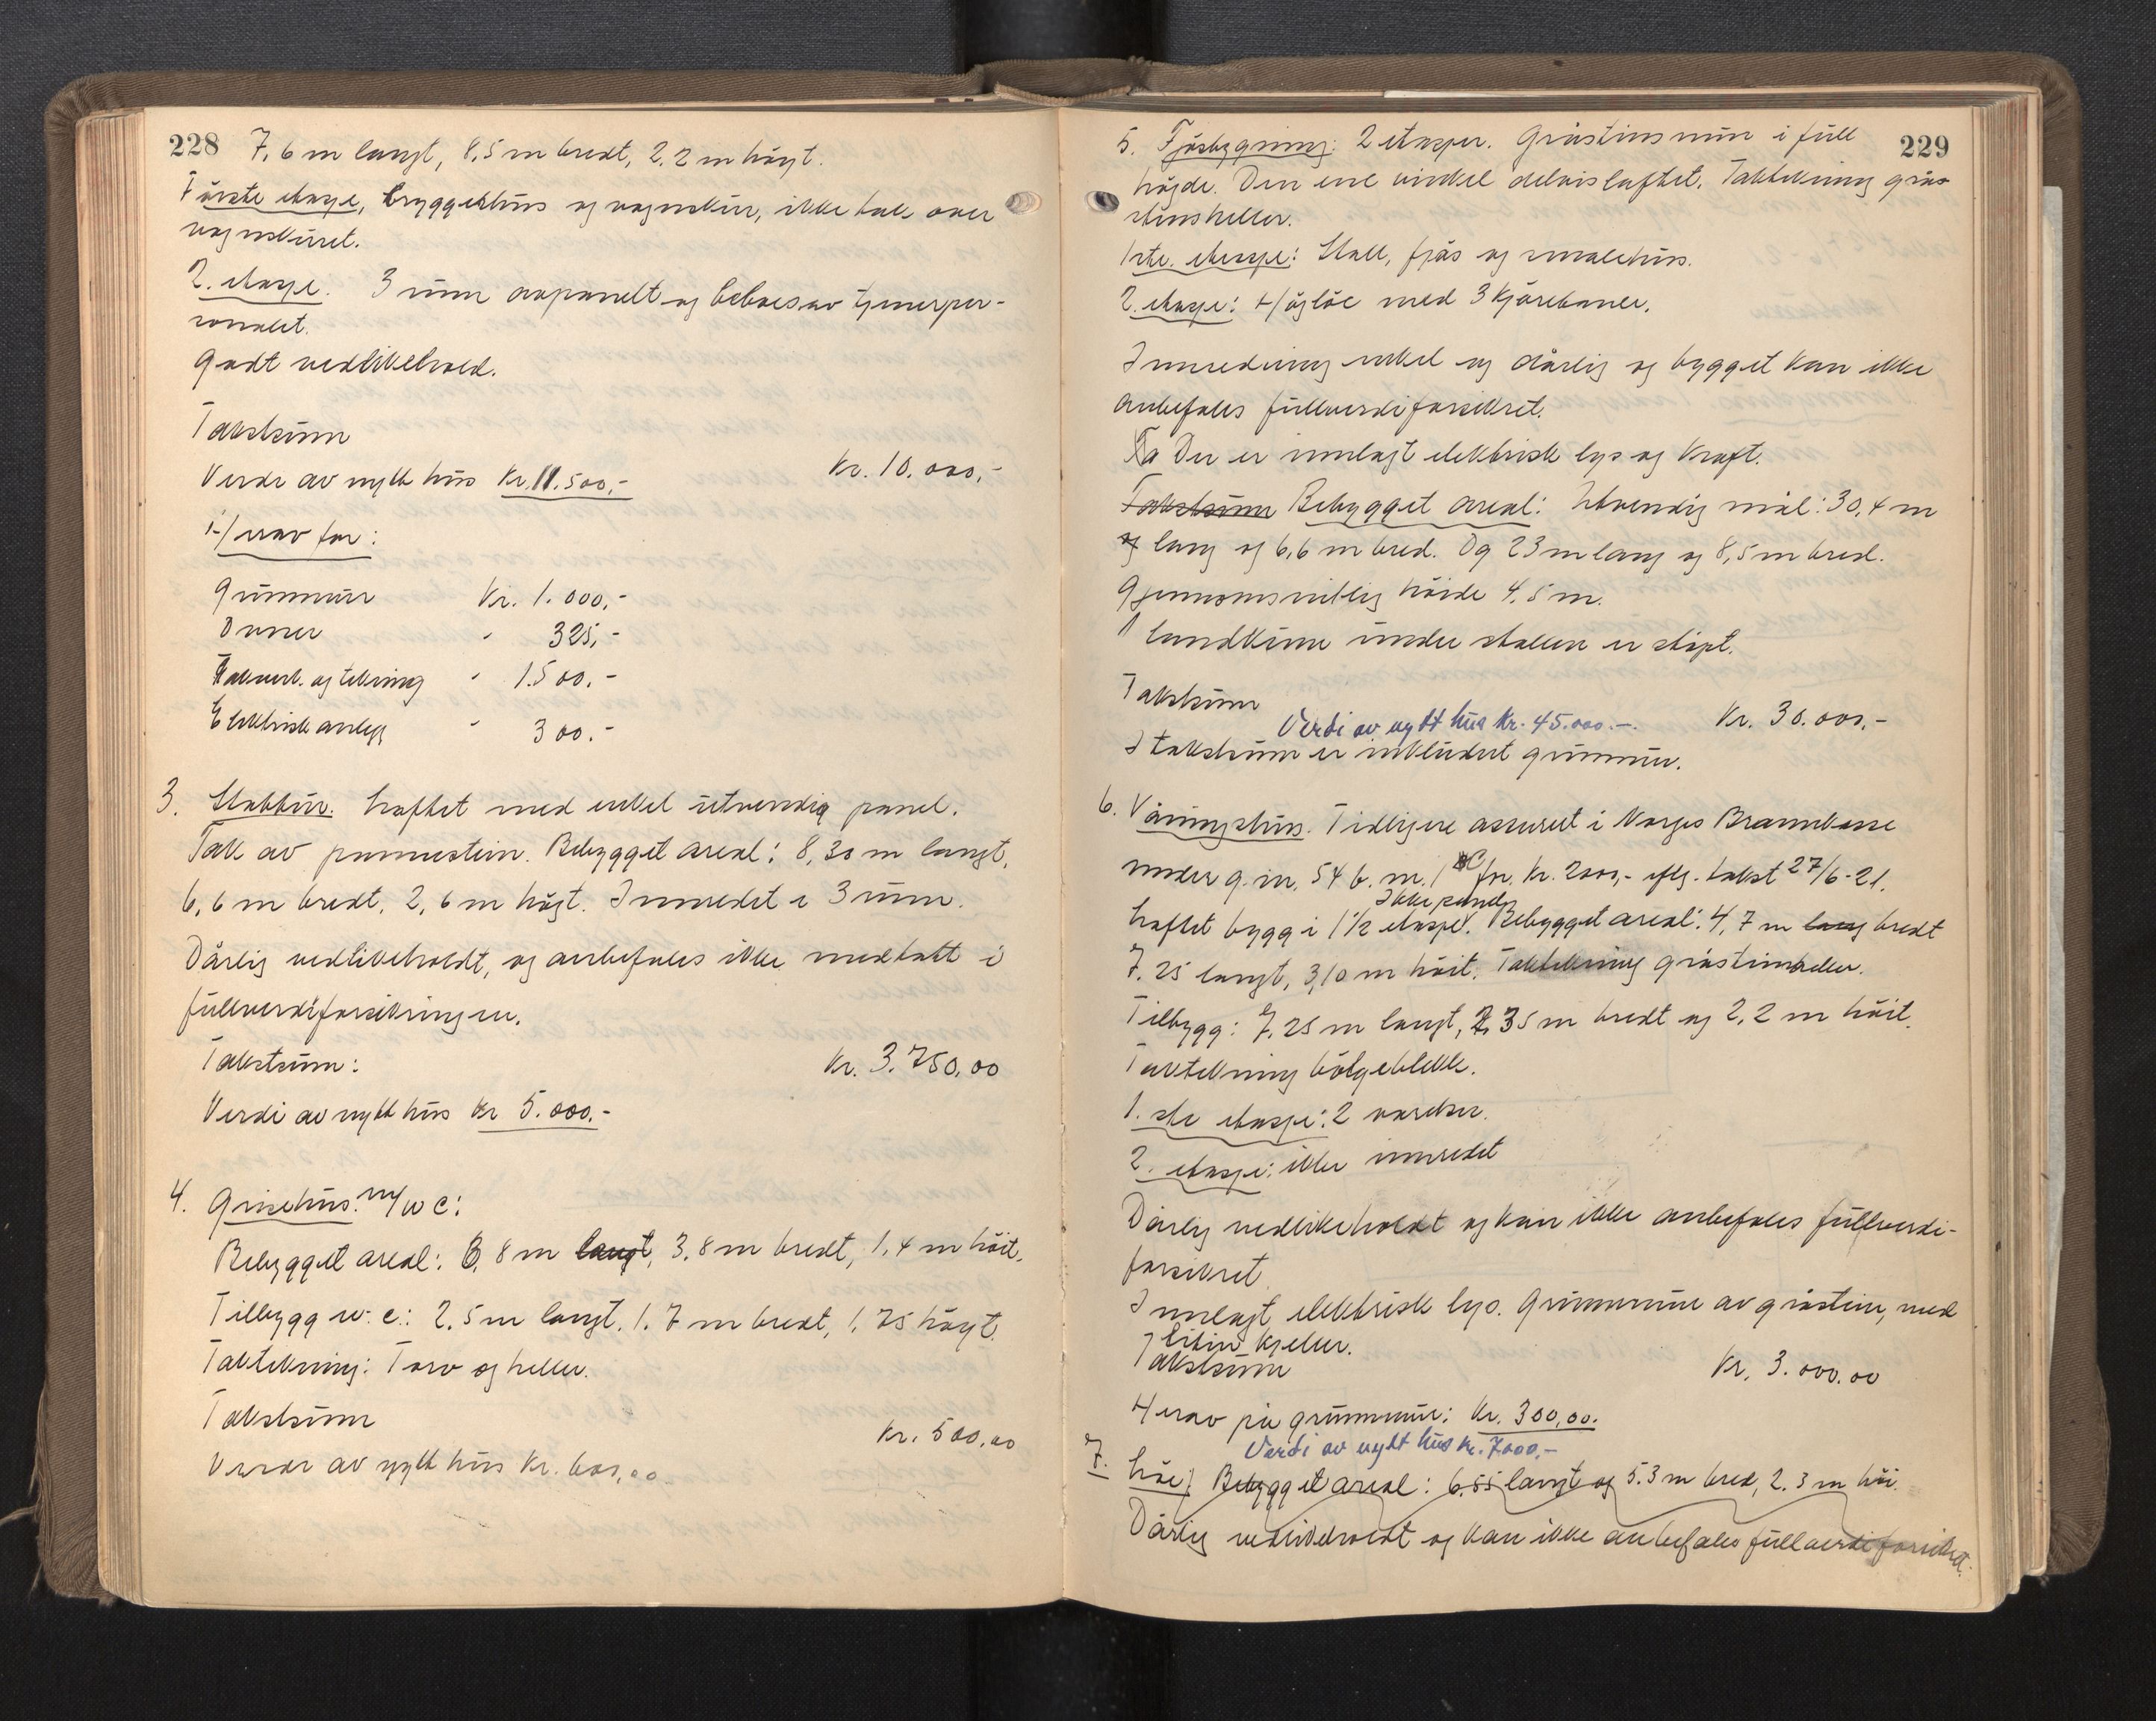 228
7,6 m langt, 8,5 m bredt, 2.2 m høgt.
Første etasje, bryggehus og vognskur, ikke tak over
vognskuret.
2. etasje. 3 rum avpanelt og beboes av tjenerper-
sonalet.
Godt vedlikehold.
Takstsum
Kr. 10.000,-
Verdi av nytt hus Kr. 11.500,-
Herav for:
Grunnmur Kr. 1.000,-
Ovner " 325,-
Takverk og tekning " 1.500.-
Elektrisk anlegg " 300.-
3. Stabbur. Laftet med enkel utvendig panel.
Tak av pannestein. Bebygget areal: 8,30 m langt,
6,6 m bredt, 2,6 m høgt. Innredet i 3 rum.
Dårlig vedlikeholdt, og anbefales ikke medtatt i
fullverdiforsikringen.
Takstsum: Kr. 3.750,00
Verdi av nytt hus kr 5.000.-
4. Grisehus. m/WC:
Bebygget areal: 6,8 m langt, 3,8 m bredt, 1,4 m høit.
Tilbygg w.c.: 2.5 m langt. 1.7 m bredt, 1,75 høgt.
Taktekning: Torv og heller.
Takstsum
Kr. 500,00
Verdi av nytt hus Kr. 600,00
229
5. Fjøsbygning: 2 etasjer. Gråstinsmur i full
høide. Den ene vinkel delvis laftet. Taktekning grå-
stinsheller.
1ste. etasje: Stall, fjøs og smalehus.
2. etasje: Høgløe med 3 kjørebaner.
Innredning enkel og dårlig og bygget kan ikke
anbefales fullverdiforsikret.
Ta Der er innlagt elektrisk lys og kraft.
Takstsum Bebygget areal: Utvendig mål: 30,4 m
og lang og 6,6 m bred. Og 23 m lang og 8,5 m bred.
Gjennomsnitlig høide 4,5 m.
landkum under stallen er støpt.
Takstsum
Verdi av nytt hus Kr. 45.000.-. Kr. 30.000,-
I takstsum er inkludert grunnmur.
6. Våningshus. Tidligere assurert i Norges Brannkasse
under g.nr. 54 b.nr. 1 for. Kr. 2000,- iflg. takst 27/6-21.
Ikke panel
Laftet bygg i 1½ etasje. Bebygget areal: 4,7 m lang bredt
7.25 langt, 3,10 m høit. Taktekning gråstinsheller.
Tilbygg: 7,25 m langt, 2,35 m bredt og 2,2 m høit.
Taktekning bølgeblekk.
1. ste etasje: 2 værelser.
2. etasje: ikke innredet
Dårlig vedlikeholdt og kan ikke anbefales fullverdi-
forsikret.
Innlagt elektrisk lys. Grunnmur av gråstein, med
liten kjeller.
Takstsum Kr. 3.000.00
Herav på grunnmur: Kr. 300,00.
Verdi av nytt hus kr. 7000,-
7. Løe; Bebygget areal: 6,55 langt og 5.3 m bred, 2.3 m høi.
Dårlig vedlikeholdt og kan ikke anbefales fullverdiforsikret.